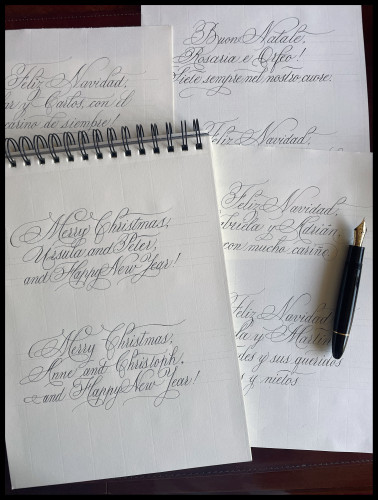 Buon Natale,
Rosaria e Orfeo!
Siete sempre nel nostro cuore.
Feliz Navidad,
y Carlos, con el
cariño de siempre!
Feliz Navidad,
Merry Christmas,
Ursula and Peter,
and Happy New Year!
Merry Christmas,
Anne and Christoph,
and Happy New Year!
Feliz Navidad,
y Adrián
con mucho cariño.
Feliz Navidad
y Martín
y sus queridos
y nietos